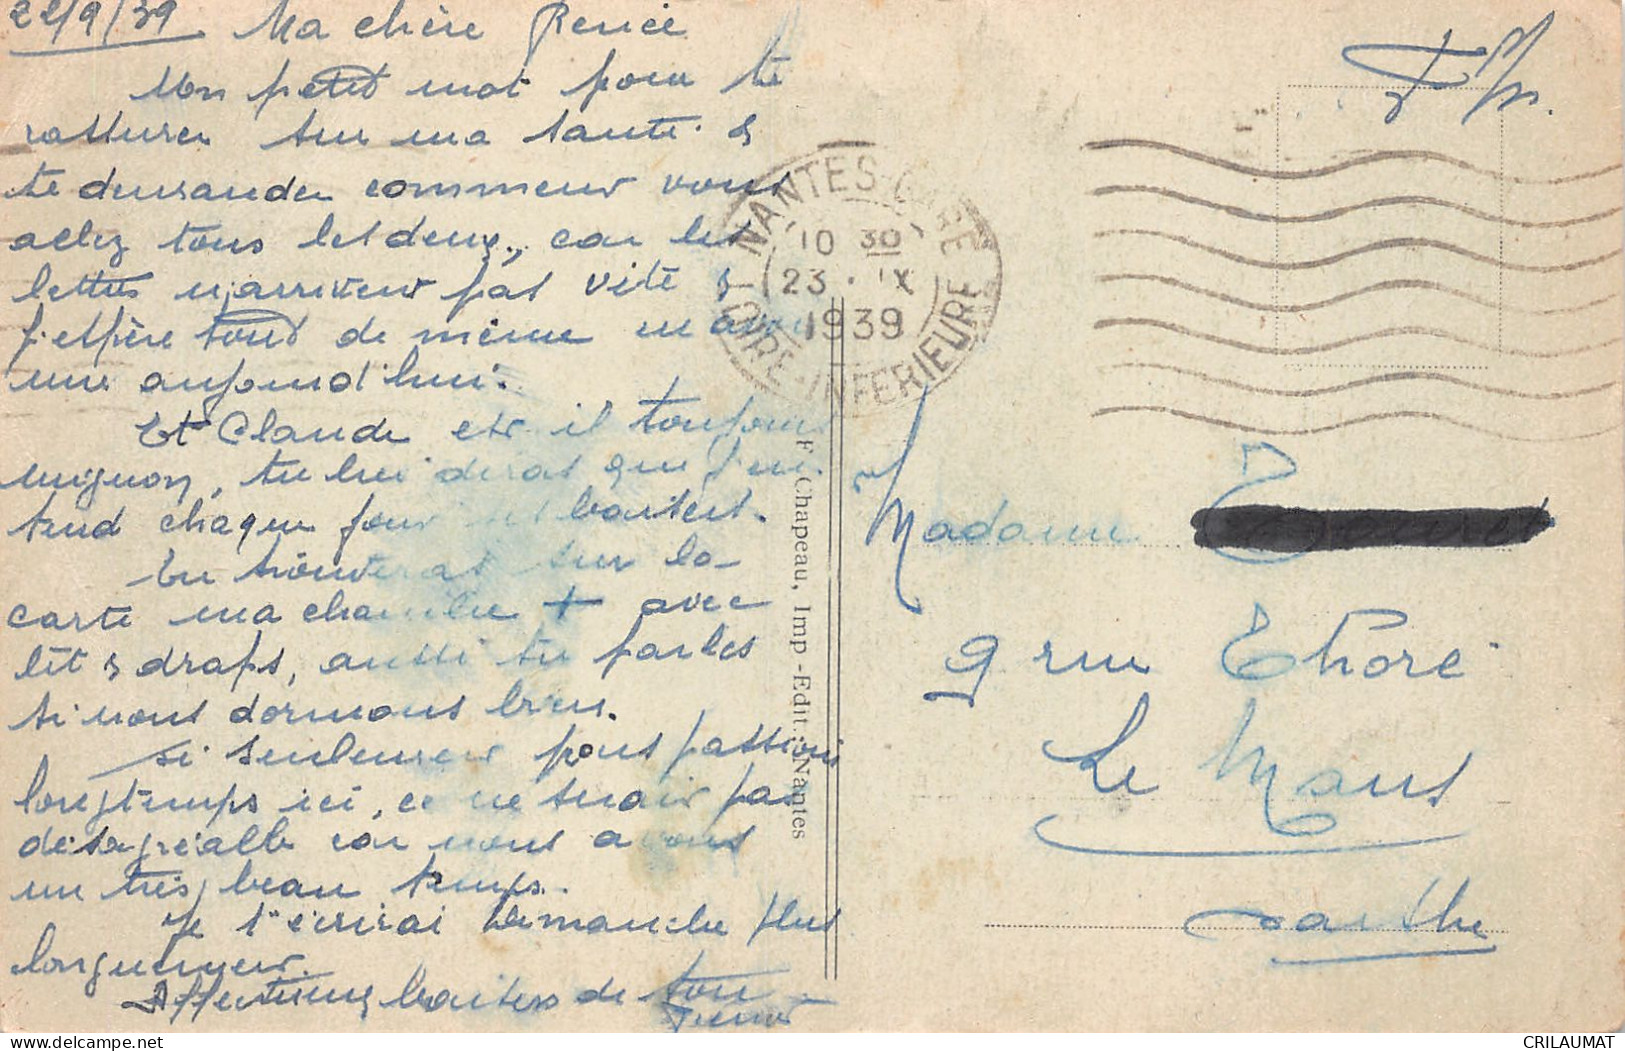 22/9/39 Ma chère Renée
Un petit mot pour te
rassurer sur ma santé &
te demander comment vous
allez tous les deux, car les
lettres n'arrivent pas vite &
j'espère tout de même en avoir
une aujourd'hui.
Et Claude est il toujours
mignon, tu lui diras que j'en
tend chaque jour ses baisers.
Tu trouveras sur la
carte ma chambre + avec
lit & draps, aussi tu parles
si nous dormons bien.
Si seulement nous passions
longtemps ici, ce ne serait pas
désagréable car nous avons
un très beau temps.
Je t'écrirai Dimanche plus
longuement.
Affectueux baisers de ton
F. Chapeau, Imp.-Edit. Nantes
NANTES-GARE
10 30
23 · IX
1939
LOIRE-INFERIEURE
F M.
Madame
9 rue Thoré
Le Mans
Sarthe
CRILAUMAT